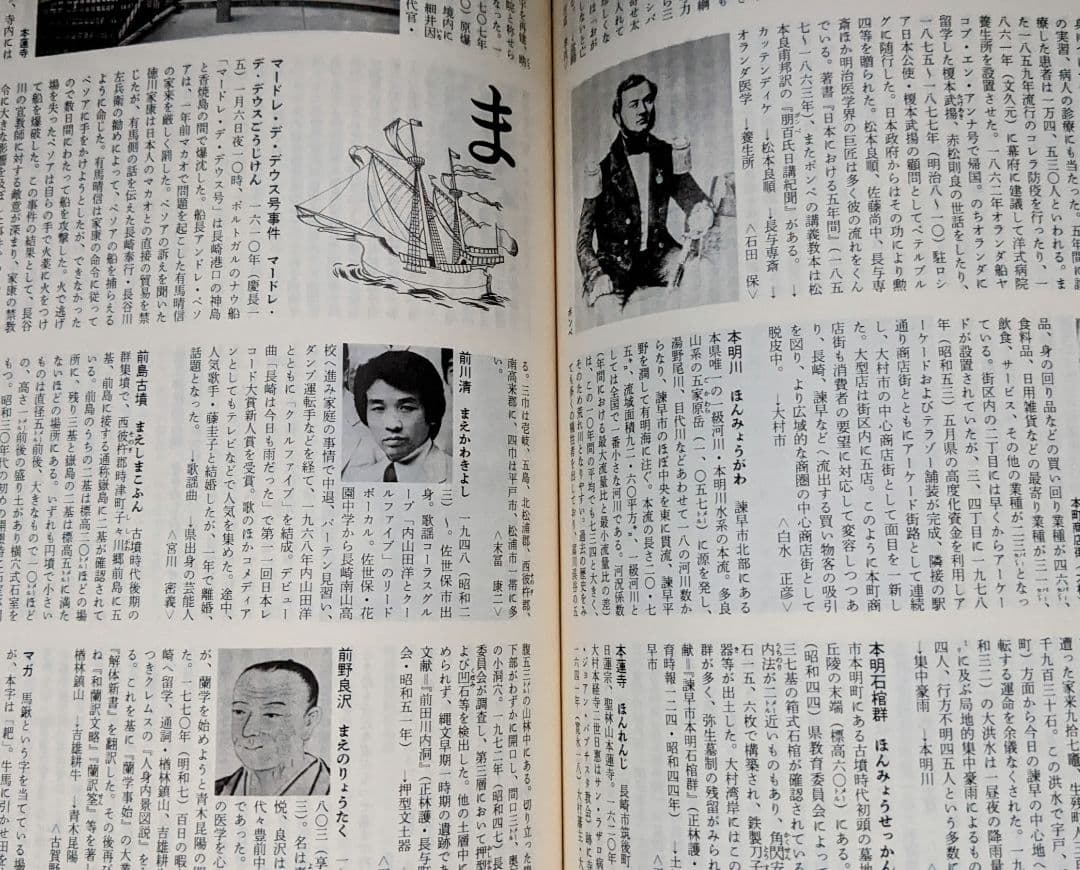 の実習、病人の診療にも当たった。五年間に診
療した患者は一万四、五三〇人といわれる。ま
た一八五九年流行のコレラ防疫を行ったり、一
八六一年（文久元）に幕府に建議して洋式病院
養生所を設置させた。一八六二年オランダ船ヤ
コブ・エン・アンナ号で帰国。のちオランダに
留学した榎本武揚、赤松則良の世話をしたり、
一八七五～一八七七年（明治八～一〇）駐ロシ
ア日本公使・榎本武揚の顧問としてペテルブル
グに随行した。日本政府からはその功により勲
四等を贈られた。松本良順、佐藤尚中、長与専
斎ほか明治医学界の巨匠は多く彼の流れをくん
でいる。著書『日本における五年間』（一八五
七～一八六三年）、またポンペの講義教本は松
本良甫邦訳の『朋百氏日講紀聞』がある。　→
カッテンディケ　→松本良順　→長与専斎　→
オランダ医学　→養生所
〈石田　保〉
ポンペ
品、身の回り品などの買い回り業種が四六
食料品、日用雑貨などの最寄り業種が三一
飲食、サービス、その他の業種が二三となっ
ている。街区内の二丁目には早くからアーケー
ドが設置されていたが、三、四丁目に一九七八
年（昭和五三）五月県の高度化資金を利用しア
ーケードおよびテラゾー舗装が完成、隣接の駅
通り商店街とともにアーケード街路として連続
し、大村市の中心商店街として面目を一新し
た。大型店は街区内に五店。このように本町商
店街も消費者の要望に対応して変容しつつあ
り、長崎、諫早などへ流出する買い物客の吸引
を図り、より広域的な商圏の中心商店街として
脱皮中。　→大村市
〈白水　正彦〉
本明川　ほんみょうがわ　諫早市北部にある
本県唯一の一級河川・本明川水系の本流。多良
山系の五家原岳（一、〇五七㍍）に源を発し、
湯野尾川、目代川などあわせて一八の河川数か
らなり、諫早市のほぼ中央を東に貫流、諫早平
野を潤して有明海に注ぐ。本流の長さ二〇・七
㌔、流域面積九二・六〇平方㌔。一級河川と
しては全国で一番小さな河川である。河況係数
（年間における最大流量と最小流量比の差）
は、この一〇年間の平均でも七三四と大きく、
遭った家来九拾七人、生残町人三
千九百三十石。この洪水で宇戸、
町）方面から今日の諫早の中心地へ
転する運命を余儀なくされた。一九
和三二）の大洪水は一昼夜の降雨量
㍉に及ぶ局地的集中豪雨によるもの
四人、行方不明四五人という多数に
→集中豪雨　→本明川
本明石棺群　ほんみょうせっかん
市本明町にある古墳時代初頭の墓地
丘陵の末端（標高六〇㍍）にある。
（昭和四四）県教育委員会によっ
三七基の箱式石棺が確認されている
内法が二㍍近いものもあり、角閃安
石一五、六枚で構築され、鉄製刀子
器等が出土した。大村湾岸にはこの
群が多く、弥生墓制の残留がみられ
献＝『諫早市本明石棺群』（正林護・
育時報一二四・昭和四四年）　→土
早市
本蓮寺　ほんれんじ　長崎市筑後町
日蓮宗、聖林山本蓮寺。一六二〇年
大村本経寺二世日恵はサン・ラザロ病院
本蓮寺
ま
マードレ・デ・デウス号事件　マードレ・
デ・デウスごうじけん　一六一〇年（慶長一
五）一月六日夜一〇時、ポルトガルのナウ船
「マードレ・デ・デウス号」は長崎港口の神島
と香焼島の間で爆沈した。船長アンドレ・ペソ
アは、一年前マカオで問題を起こした有馬晴信
の家来を厳しく罰した。ペソアの訴えを聞いた
徳川家康は日本人のマカオとの直接の貿易を禁
じたが、有馬側の話を伝えた長崎奉行・長谷川
左兵衛の勧めによって、ペソアの船を捕らえる
ように命じた。有馬晴信は家康の命令に従って
ペソアに手をかけようとしたが、できなかった
ので数日間にわたって船を攻撃した。火で逃げ
場を失ったペソアは自らの手で火薬に火をつけ
て船を爆破した。この事件の結果として、長崎
川の宣教師に対する敵意が深まり、家康の禁教
る。三巾は壱岐、五島、北松浦郡、西彼杵郡、
南高来郡に、四巾は平戸市、松浦市一帯に多
い。
〈末冨　康二〉
前川清　まえかわきよし　一九四八（昭和二
三）～。佐世保市出
身。歌謡コーラスグル
ープ「内山田洋とクー
ルファイブ」のリード
ボーカル。佐世保・花
園中学から長崎南山高
校へ進み家庭の事情で中退、バーテン見習い、
ダンプ運転手などを経て、一九六八年内山田洋
とともに「クールファイブ」を結成。デビュー
曲「長崎は今日も雨だった」で第一一回日本レ
コード大賞新人賞を受賞。歌のほかコメディア
ンとしてもテレビなどで人気を集めた。途中、
人気歌手・藤圭子と結婚したが、一年で離婚、
話題となった。　→歌謡曲　→県出身の芸能人
〈宮川　密義〉
前島古墳　まえしまこふん　古墳時代後期の
群集墳で、西彼杵郡時津町子々川郷前島に五
基、前島に接する通称嶽島に二基が確認されて
いる。前島のうちの二基は標高二〇㍍ほどの場
所に、残り三基と嶽島の二基は標高五㍍に満た
ないほどの場所にある。いずれも円墳で小さい
ものは直径五㍍前後、大きなもので一〇㍍ほど
の、高さ一㍍前後の盛り土があり横穴式石室を
腹五三㍍の山林中にある。切り立った
下部がわずかに開口し、間口三㍍、奥
の小洞穴。一九七二年（昭和四七）長
委員会が調査し、第三層において押型
よび凹石等を検出した。他の土層中に
められず、縄文早期一時期の遺跡であ
文献＝『前田川内洞』（正林護・長与町
会・昭和五一年）　→押型文土器
前野良沢　まえのりょうたく　一
八〇三（享
三）。名は
悦、良沢は
代々豊前中
の医学を心
が、蘭学を始めようと青木昆陽の
た。一七七〇年（明和七）百日の暇
崎へ留学、通詞・楢林鎮山、吉雄耕
つきクルムスの『人身内景図説』を
る。これを基に『蘭学事始』の大業
『解体新書』を翻訳した。その後再び
ね『和蘭訳文略』『蘭訳筌』等を著し
楢林鎮山　→吉雄耕牛　→青木昆陽
〈古賀野
マガ　馬鍬という字を当てている場
が、本字は「耙」。牛馬に引かせ田を